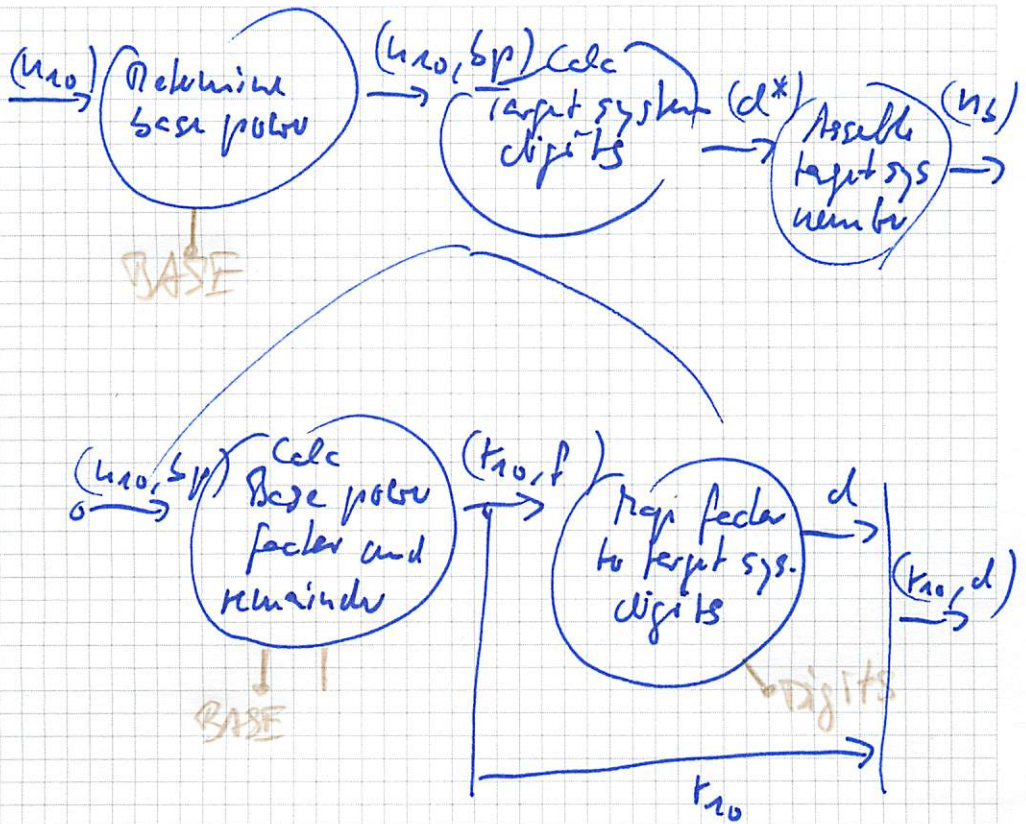 (n10)
Determine
base power
(n10, bp)
Calc
target system
digits
(d*)
Assemble
target sys
number
(nb)
BASE
(n10, bp)
Calc
Base power
factor and
remainder
(r10, f)
Map factor
to target sys.
digits
d
(r10, d)
BASE
Digits
r10